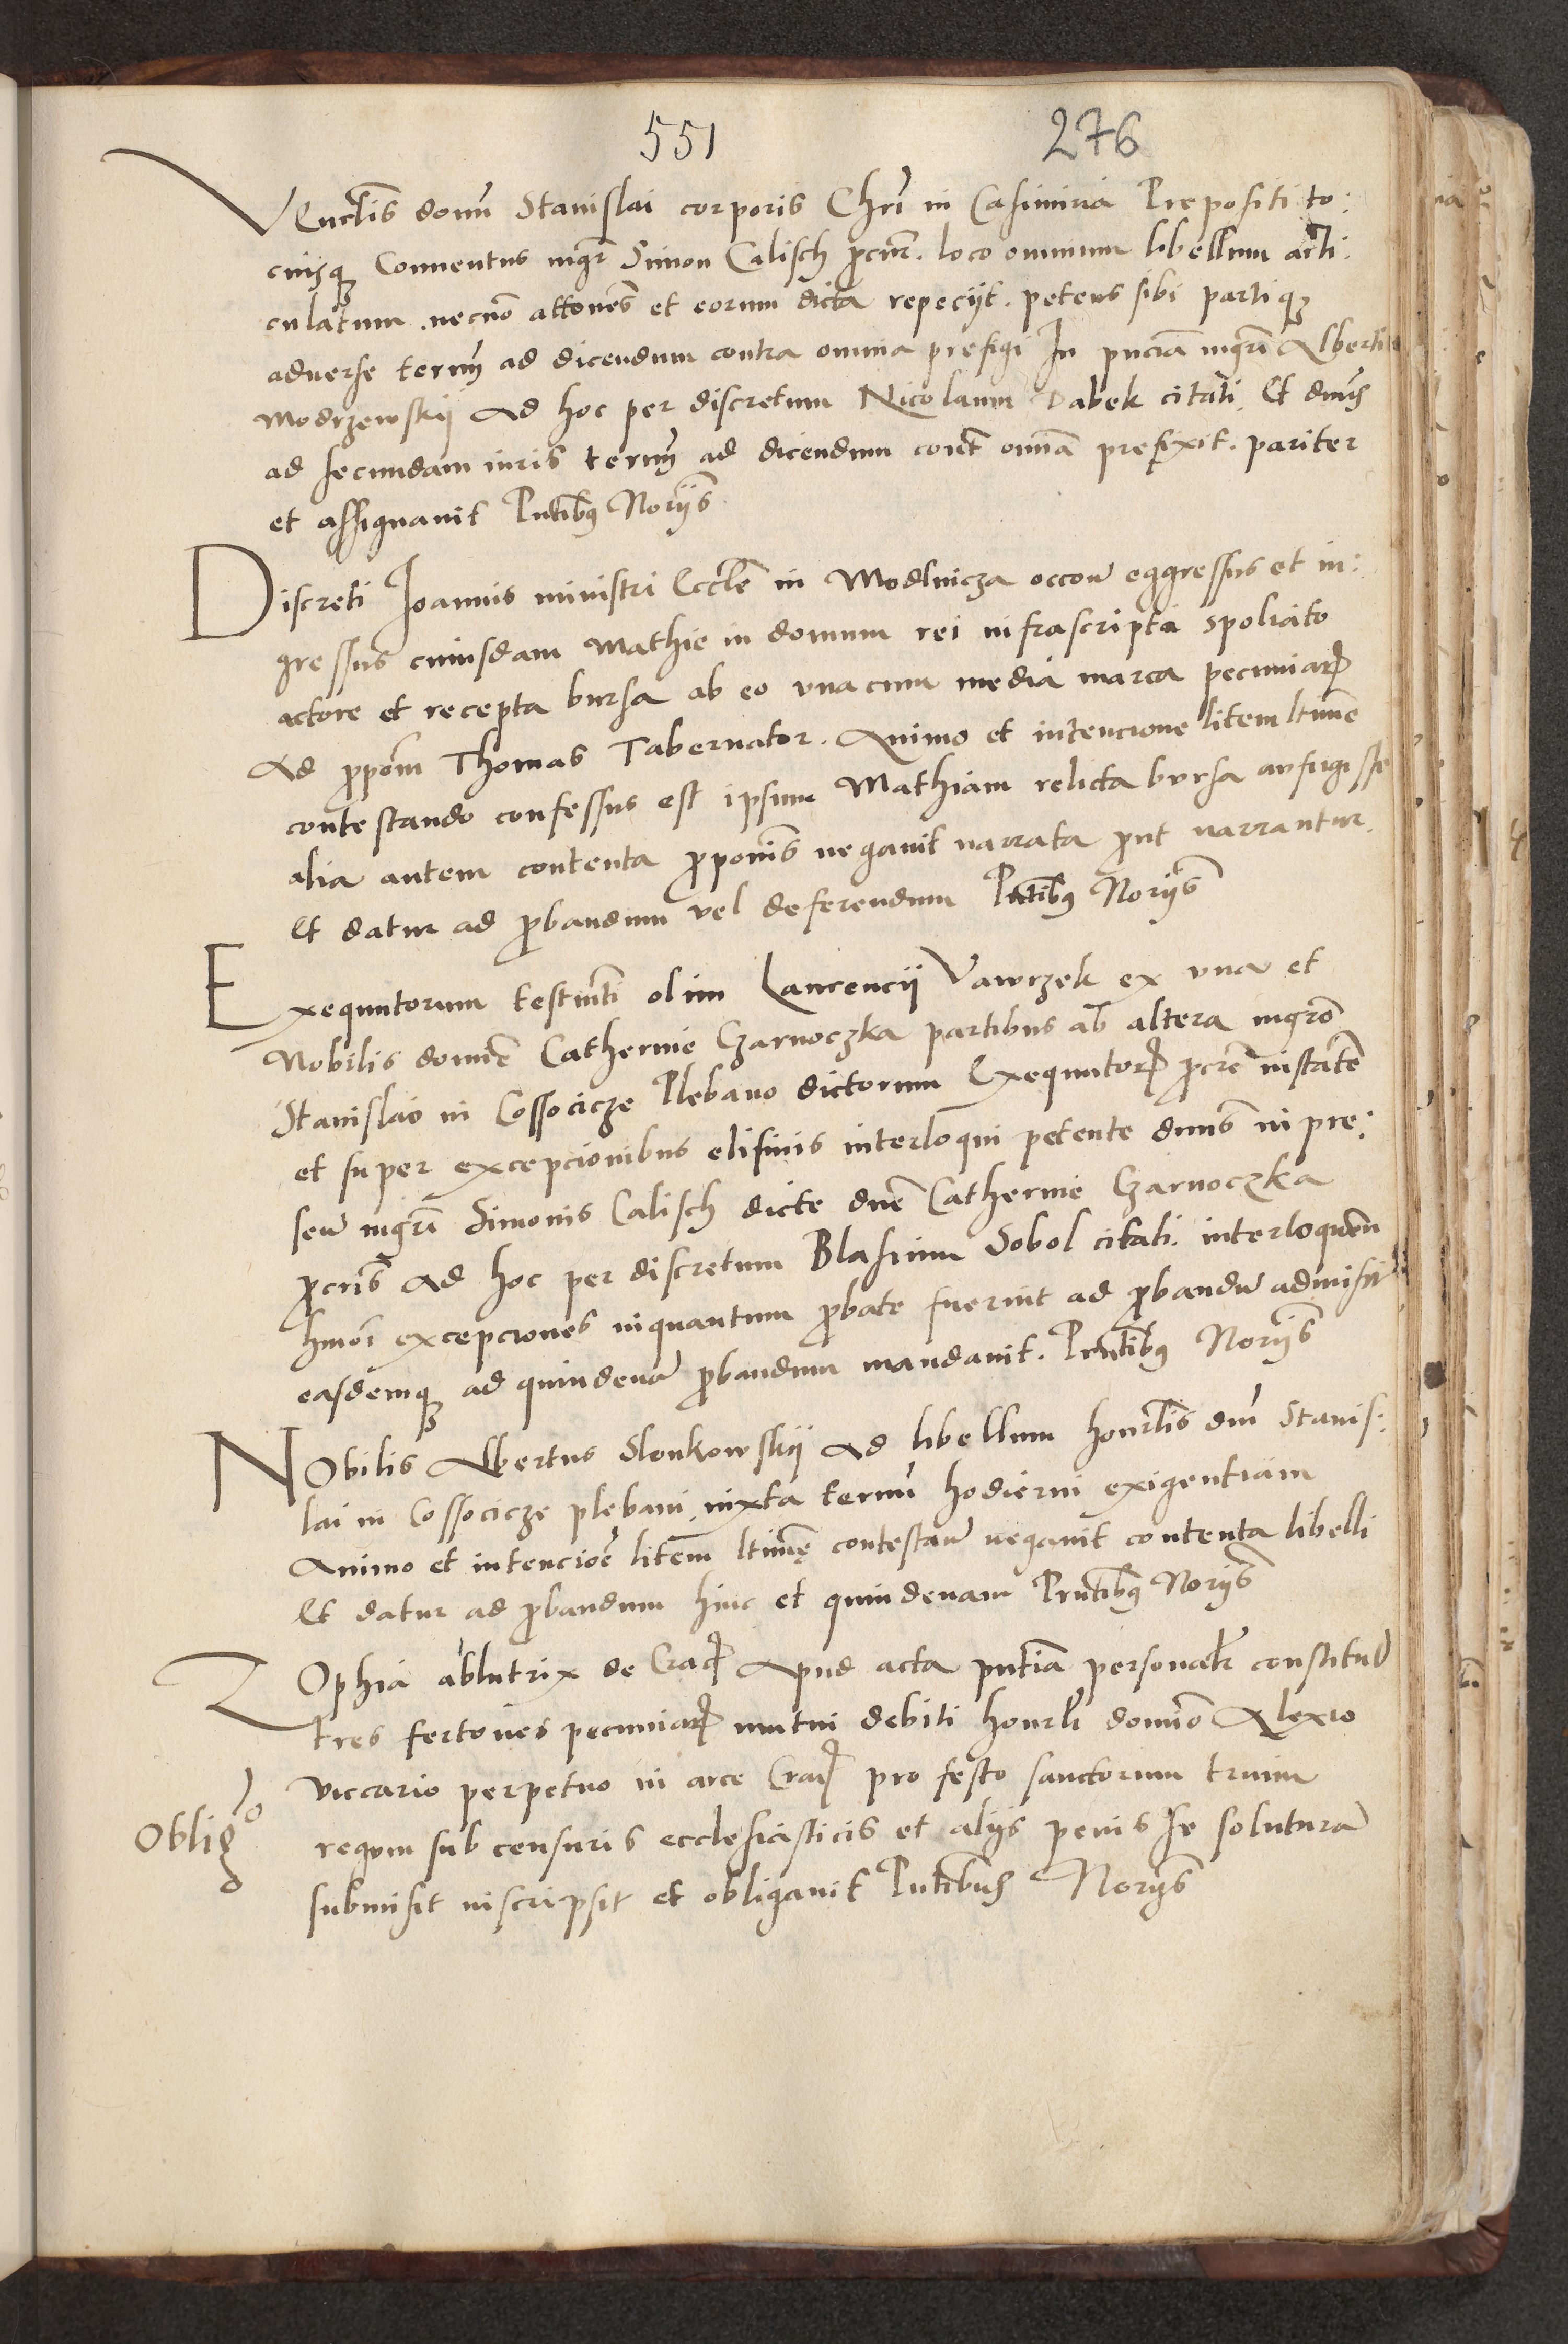 551 276
Venerlis domini Stanislai corporis Chri in Casimiria Prepositi to:
ciusq Conventus mgr Simon Calisch procur. loco omnium libellum arti:
culatum necno attones et eorum dicta repecijt. petens sibi partiq
adverse termin ad dicendum contra omnia prefigi In pnciã mgri Alberti
Modrzewskij Ad hoc per discretum Nicolaum Dabek citati. Et dnus
ad secundam iuris termin ad dicendum cont omnia prefixit. pariter
et assignavit Pntibus Norijs
Discreti Joannis ministri Eccle in Modlnicza occone eggressus et in:
gressus cuiusdam Mathie in domum rei infrascripta spoliato
actore et recepta bursa ab eo vna cum media marca pecuniar
Ad propom Thomas Tabernator. Animo et intencione litem ltime
contestando confessus est ipsum Mathiam relicta bursa aufugisse
alia autem contenta proponis negavit narrata put narrantur.
Et datur ad probandum vel deferendum Pntibus Norijs
Exequutorum testmti olim Laurencij Vawrzek ex vna et
Nobilis domine Catherine Czarnoczka partibus ab altera mgro
Stanislao in Cossocicze Plebano dictorum Exequutor procre instante
et super excepcionibus elisinis interloqui petente dnus in pre:
sen mgri Simonis Calisch dicte dne Catherine Czarnoczka
procris Ad hoc per discretum Blasium Sobol citati. interloquen
hmoi excepciones inquantum probate fuerint ad probandu admisit
easdemq ad quindena probandum mandavit. Pntibus Norijs
Nobilis Albertus Slonkowskij Ad libellum honrlis dni Stanis:
lai in Cossocicze plebani iuxta termi hodierni exigentiam
Animo et intencioe litem ltime contestan negavit contenta libelli
Et datur ad probandum hinc et quindenam Pntibus Norijs
Zophia ablutrix de Crac Apud acta pntia personalr constitut
tres fertones pecuniar mutui debiti honrli domino Alexio
viccario perpetuo in arce Crac pro festo sanctorum trium
regum sub censuris ecclesiasticis et alijs penis se soluturam
submisit inscripsit et obligavit Pntibus Norijs
Obligo